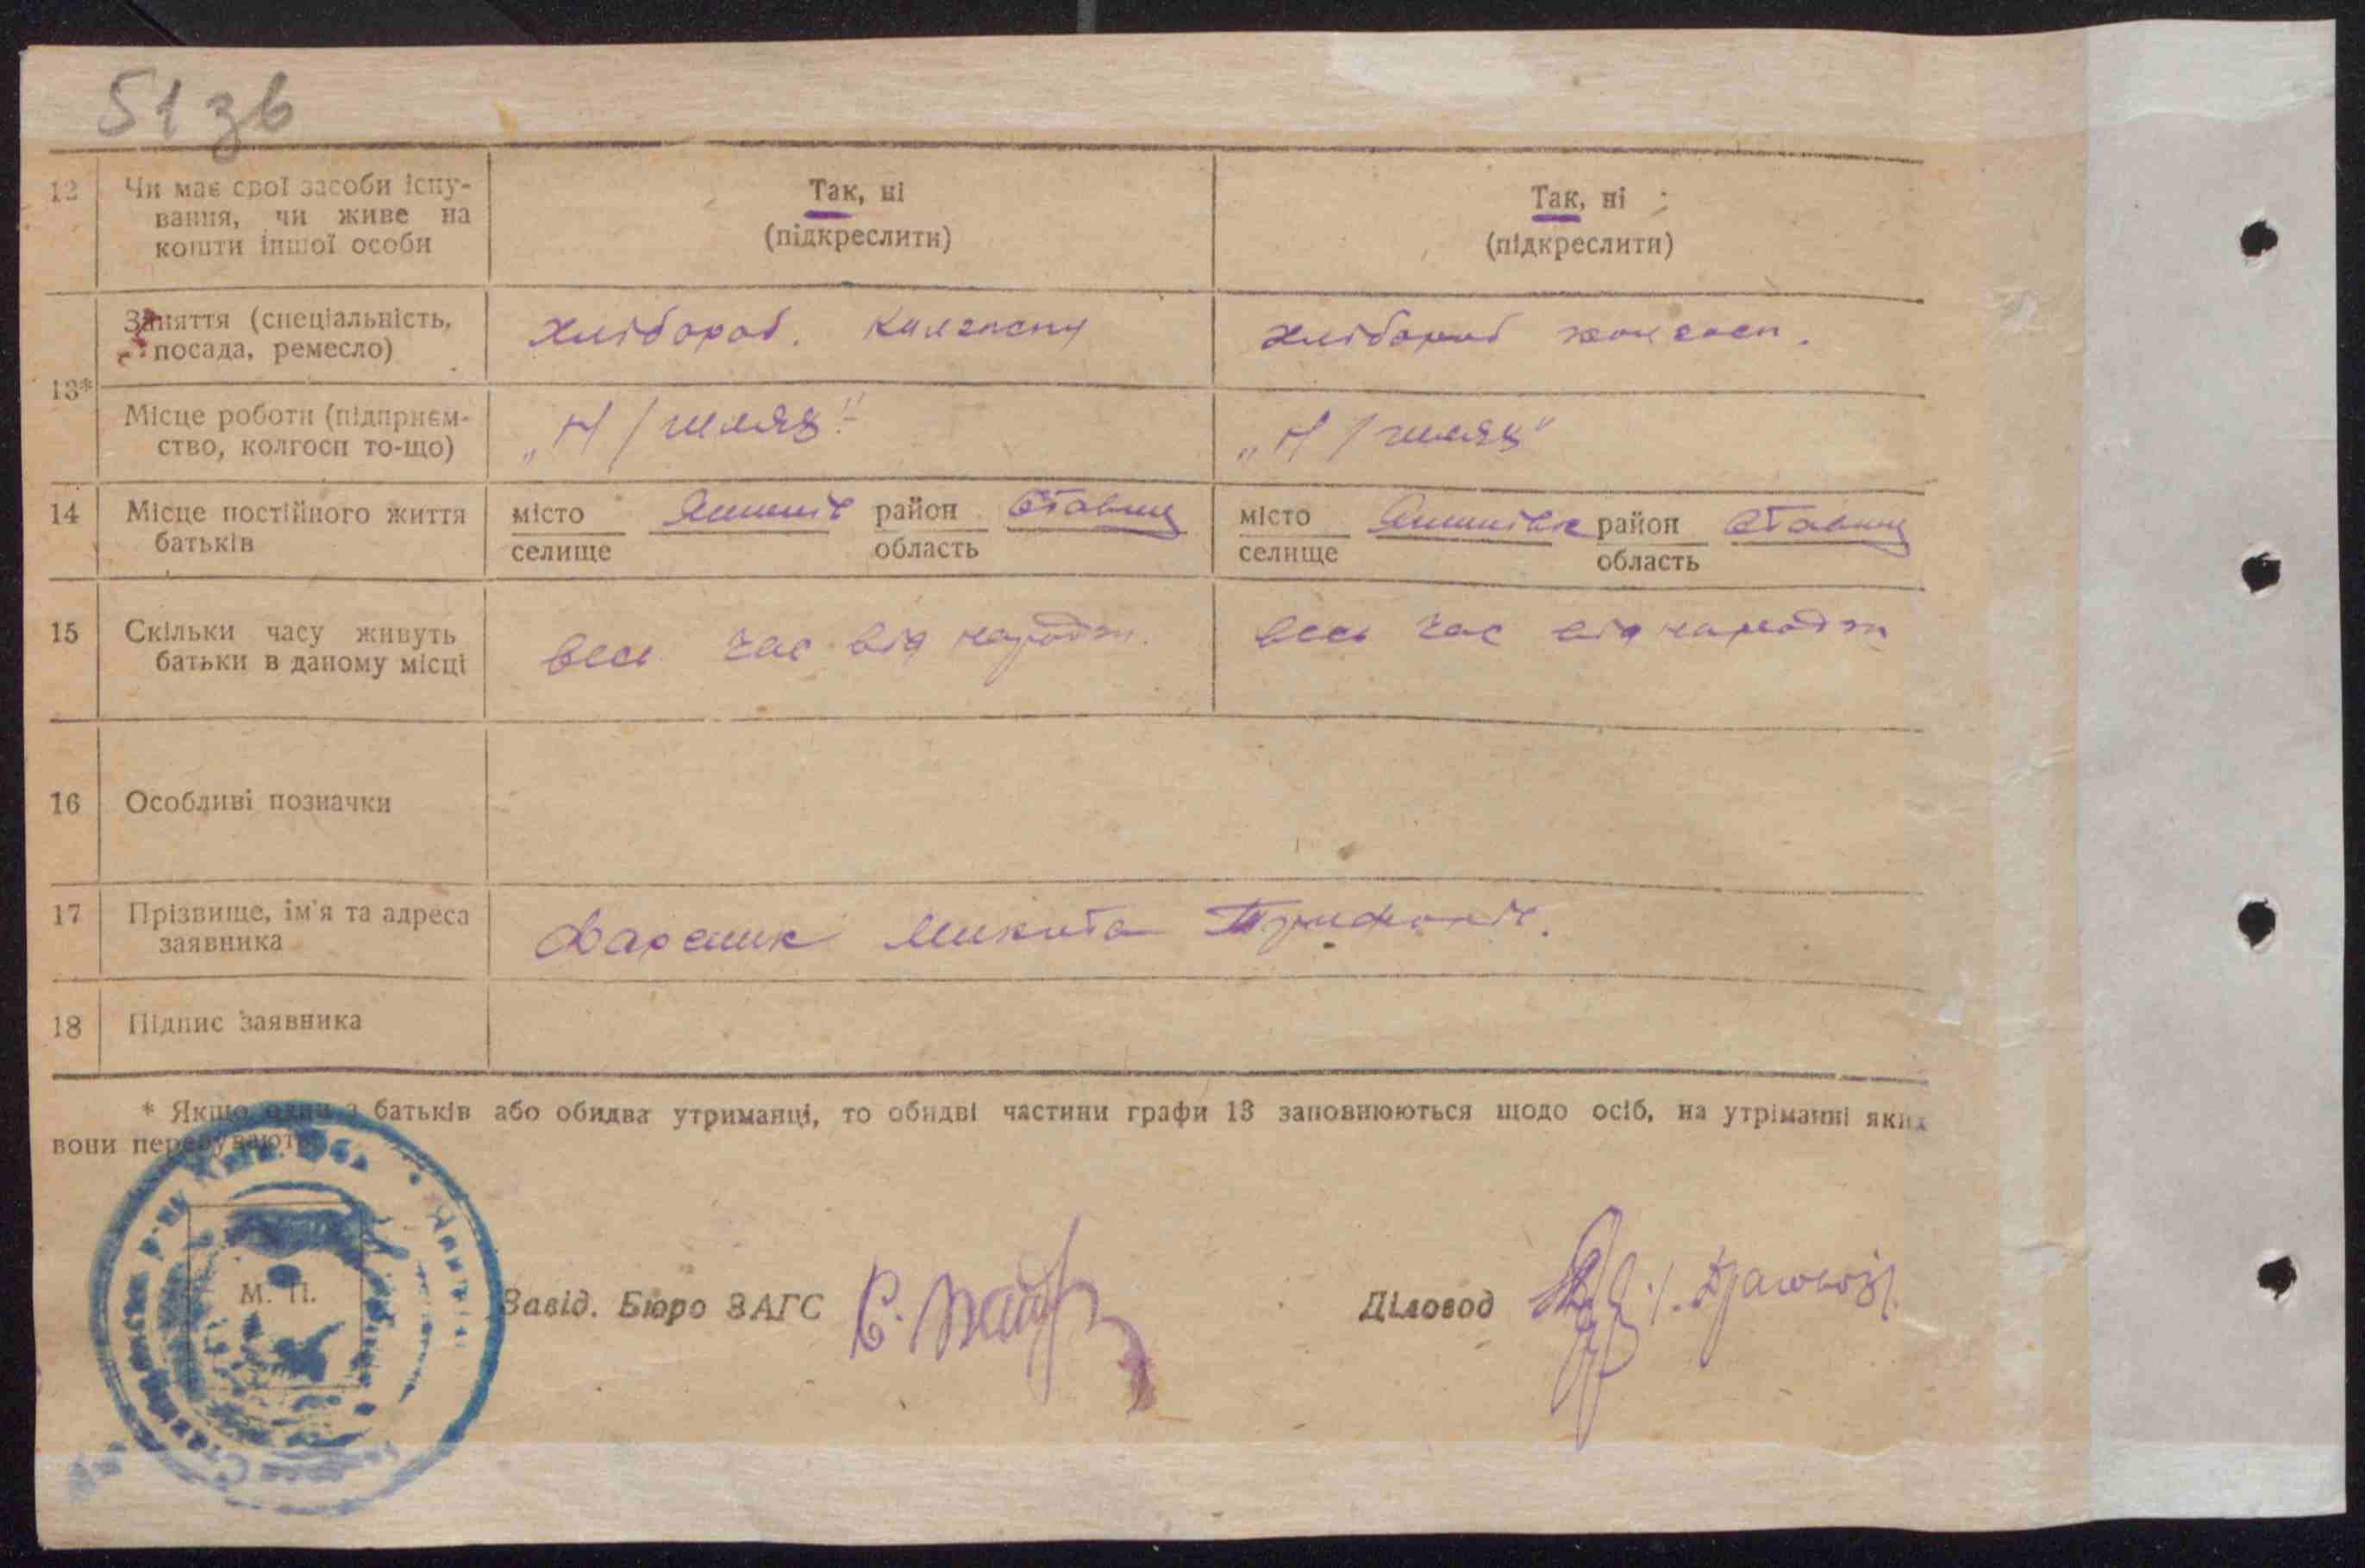 51 зв
12 Чи має свої засоби існу-
вання, чи живе на
кошти іншої особи
Так, ні
(підкреслити)
Так, ні
(підкреслити)
13*
Заняття (спеціальність,
посада, ремесло)
хлібороб. колгоспу
хлібороб колгосп.
Місце роботи (підприєм-
ство, колгосп то-що)
„Н/шлях"
„Н/шлях"
14 Місце постійного життя
батьків
місто район Ставищ
селище область
місто район Ставищ
селище область
15 Скільки часу живуть
батьки в даному місці
весь час від народж.
весь час від народж
16 Особливі позначки
17 Прізвище, ім'я та адреса
заявника
Микита Трифонов.
18 Підпис заявника
* Якщо один з батьків або обидва утриманці, то обидві частини графи 13 заповнюються щодо осіб, на утріманні яких
вони перебувають
М. П.
Завід. Бюро ЗАГС
Діловод